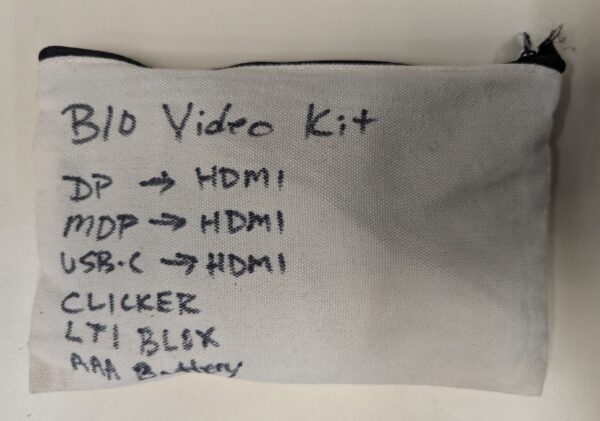 B10 Video Kit
DP → HDMI
MDP → HDMI
USB-C → HDMI
CLICKER
LTI BLOX
AAA Battery